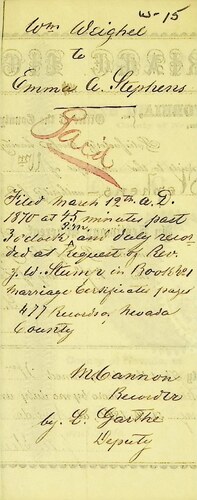 W-15
Wm Weighel
to
Emma A. Stephens
Paid
Filed March 12th A.D.
1870 at 45 minutes past
3 o'clock P.M. and duly recor
ded at Request of Rev.
J. W. Stump in Book No 1
Marriage Certificates page
477 Records of Nevada
County
McCannon
Recorder
by C. Garthe
Deputy